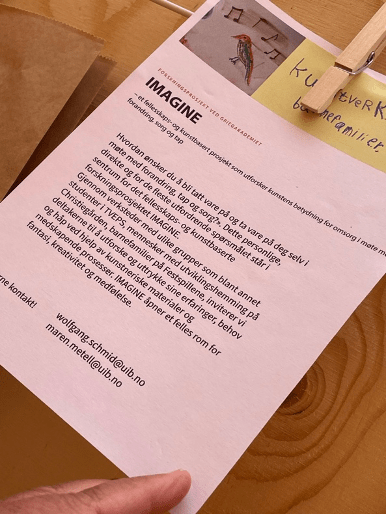 FORSKNINGSPROSJEKT VED GRIEGAKADEMIET
IMAGINE
– et fellesskaps- og kunstbasert prosjekt som utforsker kunstens betydning for omsorg i møte med
forandring, sorg og tap
Hvordan ønsker du å bli tatt vare på og ta vare på deg selv i
møte med forandring, tap og sorg?». Dette personlige,
direkte og for de fleste utfordrende spørsmålet står i
sentrum for det fellesskaps- og kunstbaserte
forskningsprosjektet IMAGINE.
Gjennom verksteder med ulike grupper som blant annet
studenter, TVEPS, mennesker med utviklingshemming på
Christiegården, barnefamilier på Festspillene, inviterer vi
deltakerne til å utforske og uttrykke sine erfaringer, behov
og håp ved hjelp av kunstneriske materialer og
medskapende prosesser. IMAGINE åpner et felles rom for
fantasi, kreativitet og medfølelse.
rne kontakt!
wolfgang.schmid@uib.no
maren.metell@uib.no
barnefamilier